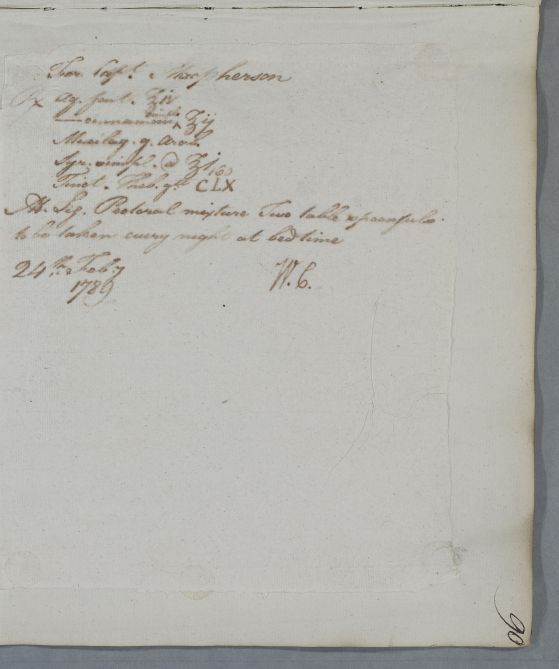 For Capt. Macpherson
Rx Aq. font. ℥iv
simple
—— cinnamom ^ ℥ij
Mucilag. g. Arab.
Syr. simpl. @ ℥j
160
Tinct. Theb. gtt CLX
M. Sig. Pectoral mixture Two table spoonfuls
to be taken every night at bedtime
24th. Feb:y
1789
W. C.
90